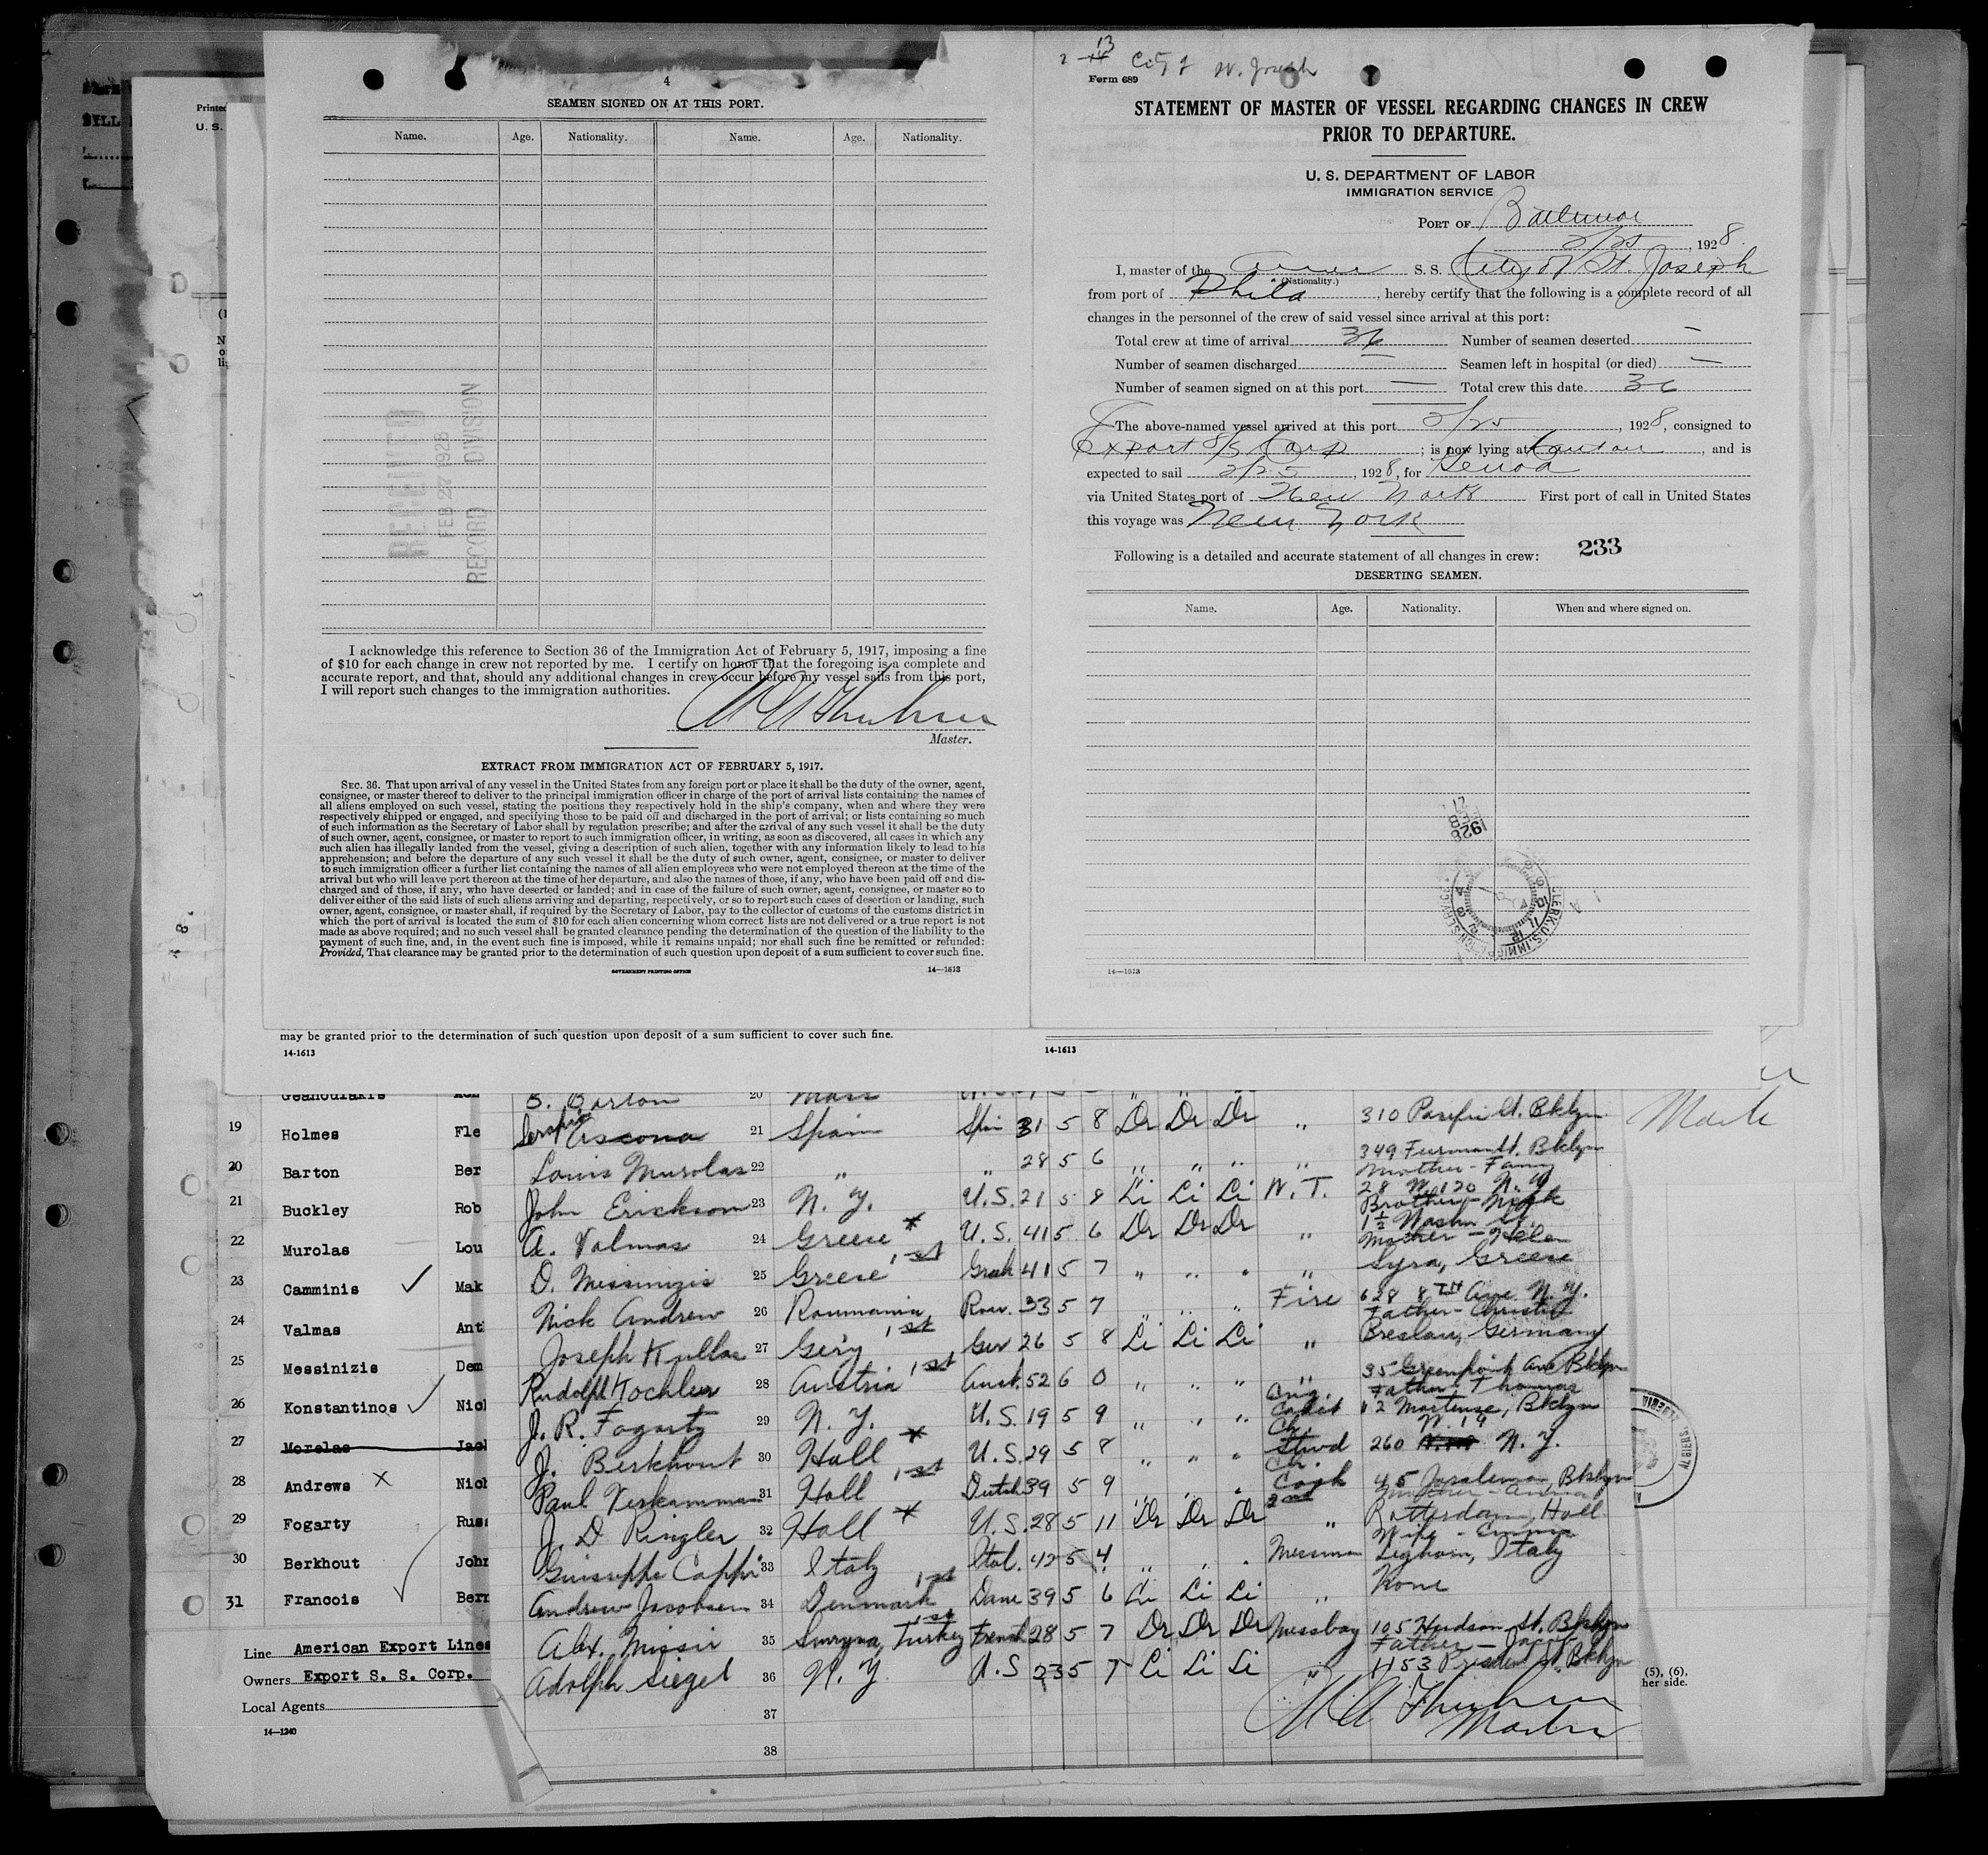 4
SEAMEN SIGNED ON AT THIS PORT.
Name. Age. Nationality. Name. Age. Nationality.
RECEIVED
FEB 27 1928
RECORD DIVISION
I acknowledge this reference to Section 36 of the Immigration Act of February 5, 1917, imposing a fine
of $10 for each change in crew not reported by me. I certify on honor that the foregoing is a complete and
accurate report, and that, should any additional changes in crew occur before my vessel sails from this port,
I will report such changes to the immigration authorities.
Master.
EXTRACT FROM IMMIGRATION ACT OF FEBRUARY 5, 1917.
SEC. 36. That upon arrival of any vessel in the United States from any foreign port or place it shall be the duty of the owner, agent,
consignee, or master thereof to deliver to the principal immigration officer in charge of the port of arrival lists containing the names of
all aliens employed on such vessel, stating the positions they respectively hold in the ship's company, when and where they were
respectively shipped or engaged, and specifying those to be paid off and discharged in the port of arrival; or lists containing so much
of such information as the Secretary of Labor shall by regulation prescribe; and after the arrival of any such vessel it shall be the duty
of such owner, agent, consignee, or master to report to such immigration officer, in writing, as soon as discovered, all cases in which any
such alien has illegally landed from the vessel, giving a description of such alien, together with any information likely to lead to his
apprehension; and before the departure of any such vessel it shall be the duty of such owner, agent, consignee, or master to deliver
to such immigration officer a further list containing the names of all alien employees who were not employed thereon at the time of the
arrival but who will leave port thereon at the time of her departure, and also the names of those, if any, who have been paid off and dis-
charged and of those, if any, who have deserted or landed; and in case of the failure of such owner, agent, consignee, or master so to
deliver either of the said lists of such aliens arriving and departing, respectively, or so to report such cases of desertion or landing, such
owner, agent, consignee, or master shall, if required by the Secretary of Labor, pay to the collector of customs of the customs district in
which the port of arrival is located the sum of $10 for each alien concerning whom correct lists are not delivered or a true report is not
made as above required; and no such vessel shall be granted clearance pending the determination of the question of the liability to the
payment of such fine, and, in the event such fine is imposed, while it remains unpaid; nor shall such fine be remitted or refunded:
Provided, That clearance may be granted prior to the determination of such question upon deposit of a sum sufficient to cover such fine.
GOVERNMENT PRINTING OFFICE 14—1613
may be granted prior to the determination of such question upon deposit of a sum sufficient to cover such fine.
14-1613
Form 689
STATEMENT OF MASTER OF VESSEL REGARDING CHANGES IN CREW
PRIOR TO DEPARTURE.
U. S. DEPARTMENT OF LABOR
IMMIGRATION SERVICE
PORT OF Baltimore
2/25, 1928.
I, master of the Amer S. S. City of St. Joseph
(Nationality.)
from port of Phila, hereby certify that the following is a complete record of all
changes in the personnel of the crew of said vessel since arrival at this port:
Total crew at time of arrival 36 Number of seamen deserted —
Number of seamen discharged — Seamen left in hospital (or died) —
Number of seamen signed on at this port — Total crew this date 36
The above-named vessel arrived at this port 2/25, 1928, consigned to
Export S/S Corp; is now lying at Canton, and is
expected to sail 2/25, 1928, for Genoa
via United States port of New York First port of call in United States
this voyage was New York
Following is a detailed and accurate statement of all changes in crew: 233
DESERTING SEAMEN.
Name. Age. Nationality. When and where signed on.
14—1613
14-1613
19 Holmes Fle
20 Barton Ber
21 Buckley Rob
22 Murolas Lou
23 Camminis ✓ Mak
24 Valmas Ant
25 Messinizis Dem
26 Konstantinos ✓ Nic
27 Morelas Jac
28 Andrews X Nic
29 Fogarty Russ
30 Berkhout John
31 Francois Bern
Line American Export Lines
Owners Export S. S. Corp.
Local Agents
14—1240
B. Barton 20 Mass
Ascona 21 Spain Span 31 5 8 Dr Dr Dr " 310 Pacific St. Bklyn
Louis Murolas 22 " " 28 5 6 " " " " 349 Furman St. Bklyn
Mother - Fanny
John Erickson 23 N. Y. U.S. 21 5 8 Li Li Li W.T. 28 W. 120 N.Y.
Brother - Nick
A. Valmas 24 Greese * U.S. 41 5 6 Dr Dr Dr " 1½ Washn St.
Mother - Helen
D. Messinizis 25 Greese 1st Greek 41 5 7 " " " " Syra, Greese
Nick Andrew 26 Roumania Rou. 33 5 7 " " " Fire 628 8TH Ave. N.Y.
Father - Christ
Joseph Kullas 27 Gery 1st Ger 26 5 8 Li Li Li " Breslau, Germany
Rudolph Kochler 28 Austria 1st Aust. 52 6 0 " " " " 35 Greenpoint Ave Bklyn
Father, Thomas
J. R. Fogarty 29 N. Y. U.S. 19 5 9 " " " Eng. Cadet 12 Martense, Bklyn
J. Berkhout 30 Holl * U.S. 29 5 8 " " " Ch. Stwd 260 W. 14 N.Y.
Paul Verkamman 31 Holl 1st Dutch 39 5 9 " " " Ch. Cook 45 Jeralemon, Bklyn
J. D. Ringler 32 Holl * U.S. 28 5 11 Dr Dr Dr 2nd " Rotterdam, Holl
Wife - Emma
Guiseppe Cappi 33 Italy Ital. 42 5 4 " " " Messman Leghorn, Italy
Andrew Jacobsen 34 Denmark 1st Dane 39 5 6 Li Li Li " None
Alex. Missir 35 Smyrna, Turkey 1st French 28 5 7 Dr Dr Dr Messboy 105 Hudson St. Bklyn
Father - Jacob
Adolph Siegel 36 N. Y. U.S 23 5 7 Li Li Li " 1153 President St. Bklyn
37
Master
38
(5), (6).
her side.